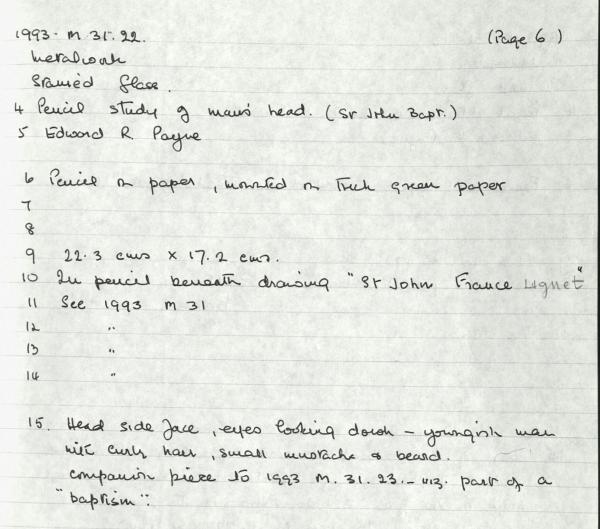 1993. M. 31. 22. (Page 6)
Metalwork
Stained Glass.
4 Pencil study of man's head. (St John Bapt.)
5 Edward R. Payne
6 Pencil on paper, mounted on thick green paper
7
8
9 22.3 cms x 17.2 cms.
10 In pencil beneath drawing "St John France Lignet"
11 See 1993 M 31
12 "
13 "
14 "
15. Head side face, eyes looking down - youngish man
with curly hair, small mustache & beard.
companion piece to 1993 M. 31. 23. - part of a
"baptism".